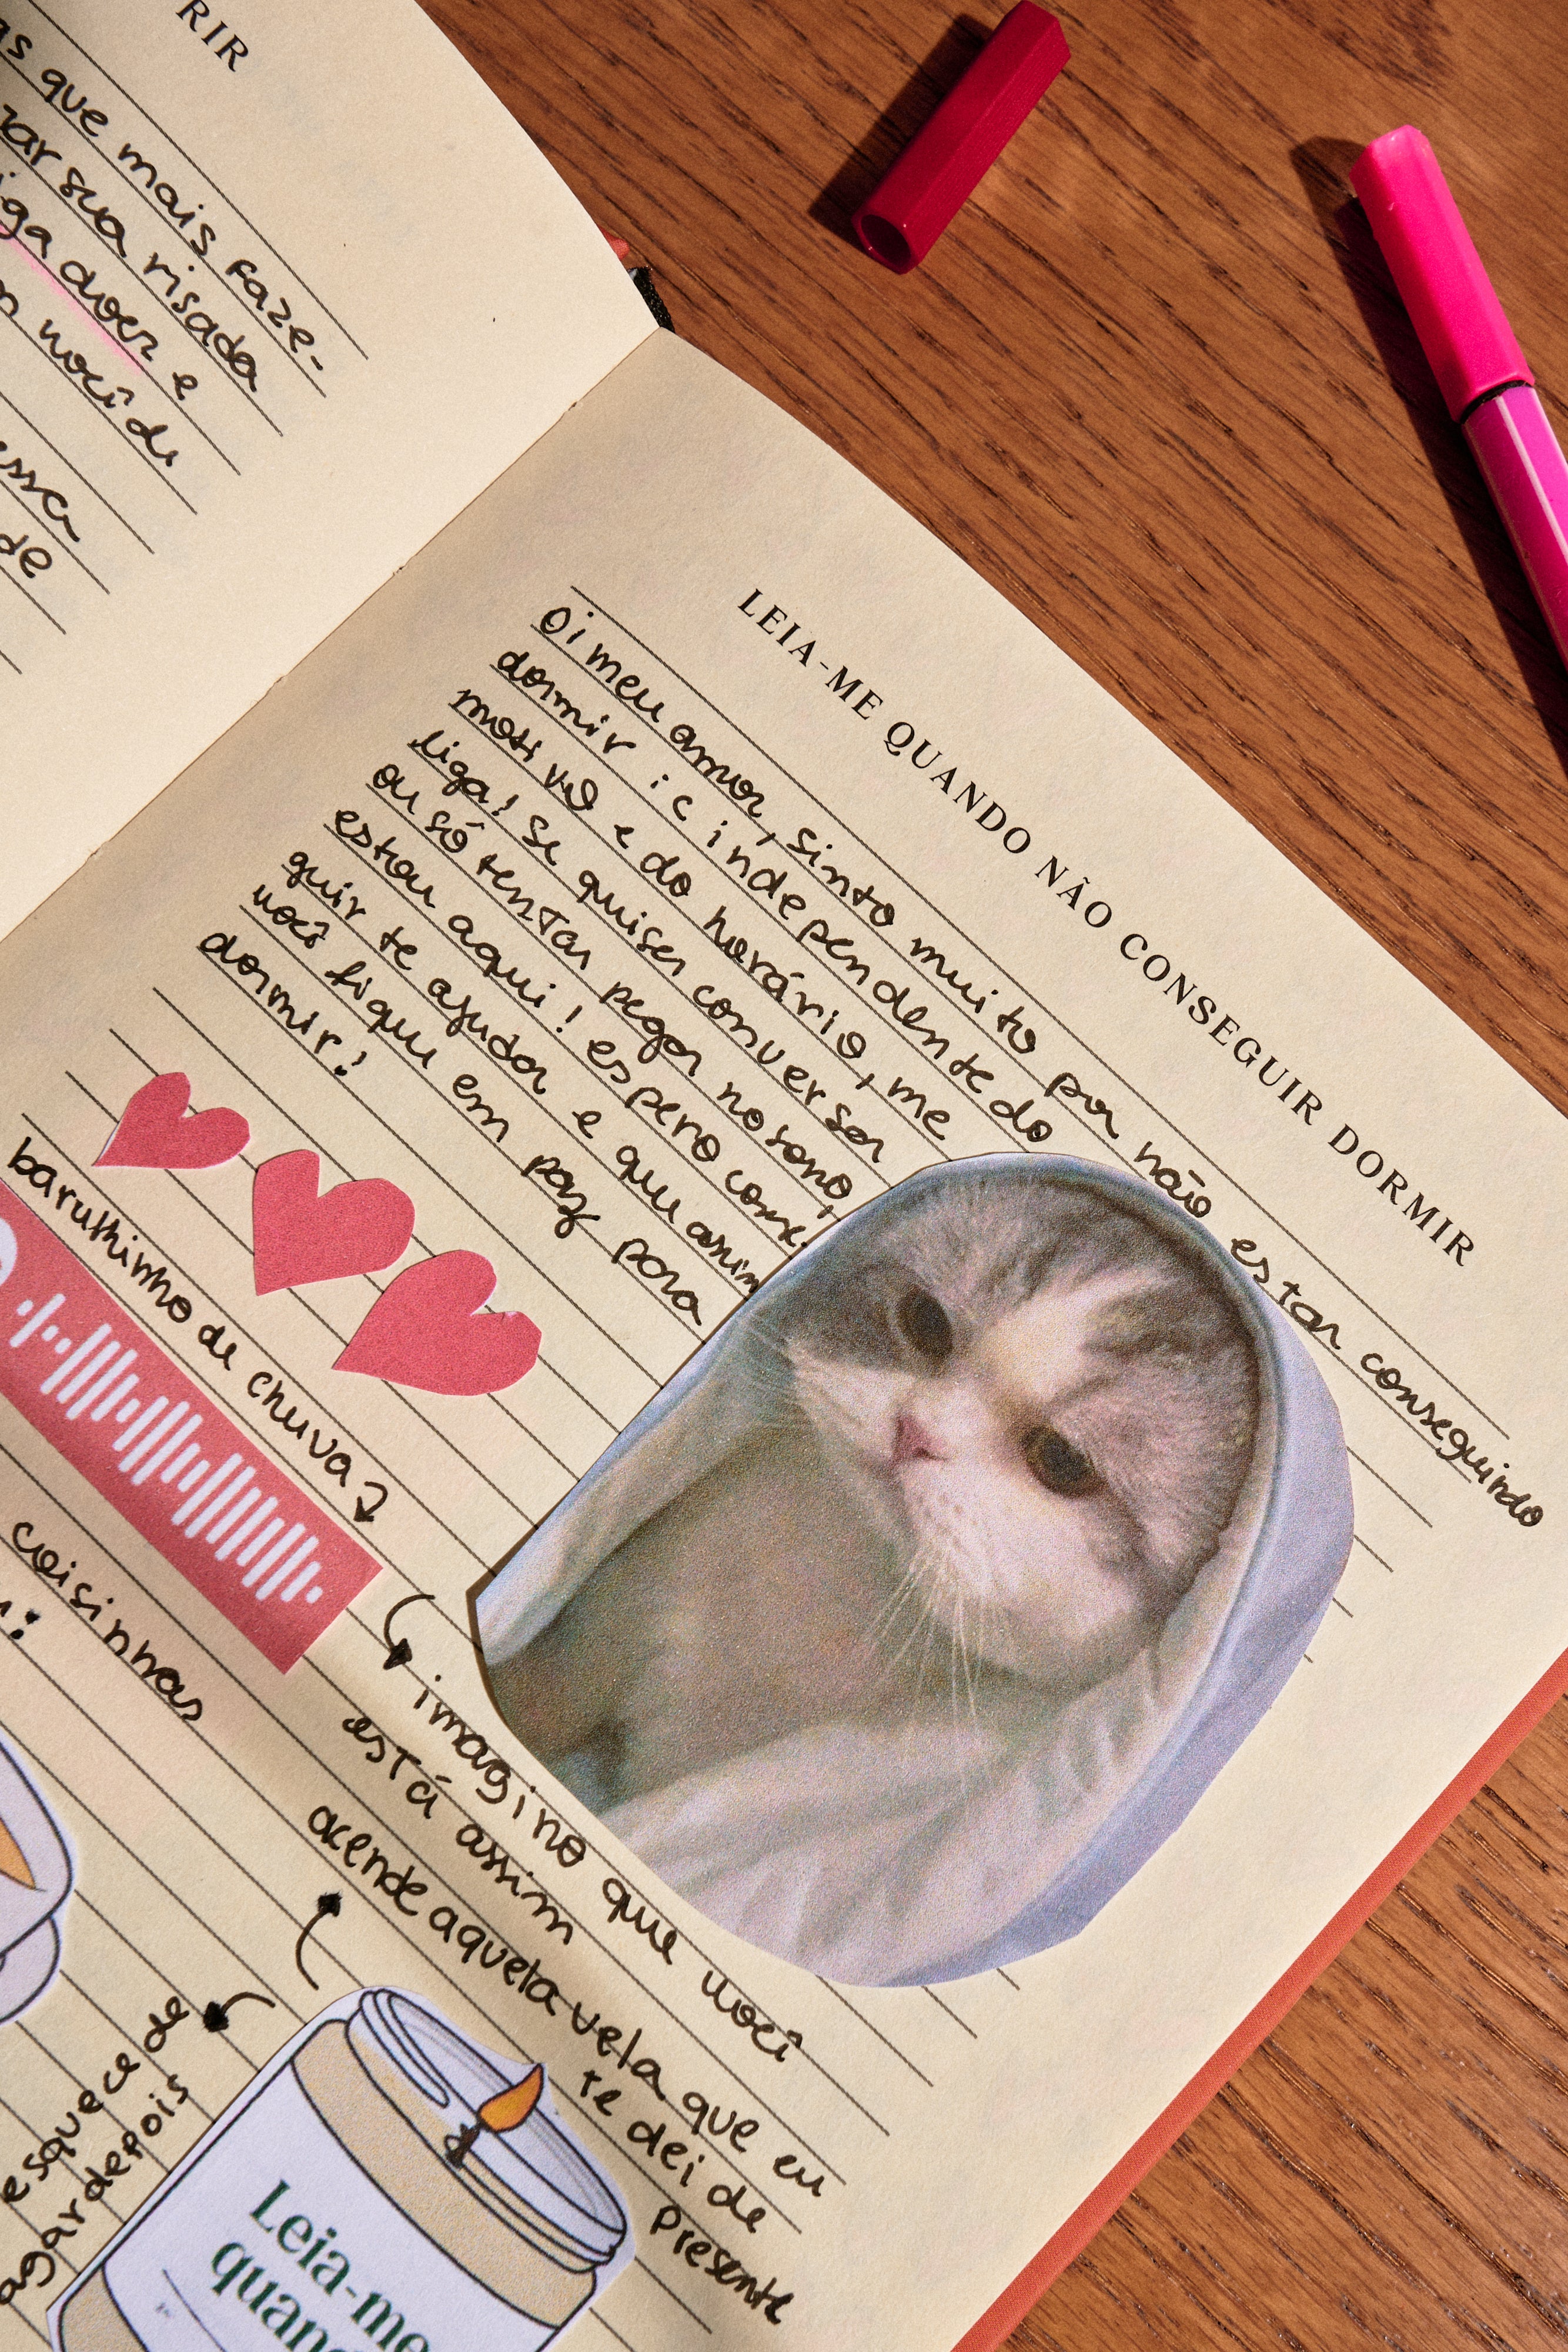 RIR
que mais faze-
sua risada
doer e
você de
essa
de
LEIA-ME QUANDO NÃO CONSEGUIR DORMIR
Oi meu amor, sinto muito por não estar conseguindo
dormir :c independente do
motivo e do horário, me
liga! Se quiser conversar
ou só tentar pegar no sono,
estou aqui! espero conse-
guir te ajudar e que assim
você fique em paz para
dormir!
barulhinho de chuva
coisinhas
imagino que você
está assim
acende aquela vela que eu
te dei de
presente
esquece de
depois
Leia-me